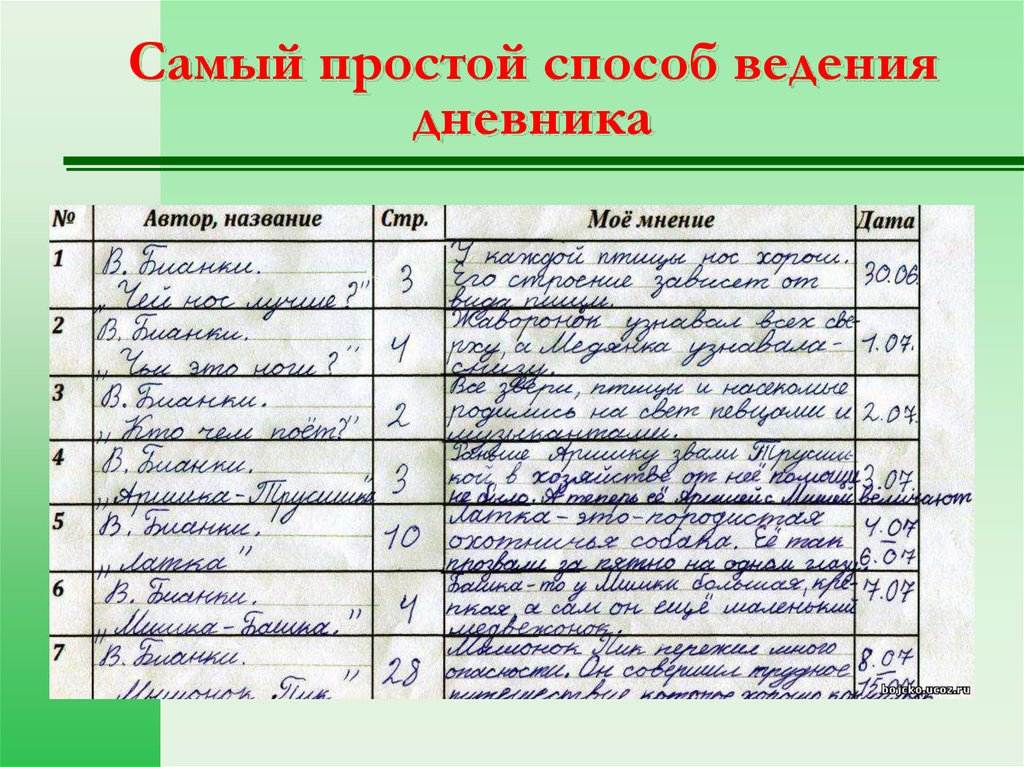 Самый простой способ ведения
дневника
№ Автор, название Стр. Моё мнение Дата
1 В. Бианки. „Чей нос лучше?" 3
У каждой птицы нос хорош.
Его строение зависит от
вида пищи.
30.06
2 В. Бианки. „Чьи это ноги?" 4
Жаворонок узнавал всех све-
рху, а Медянка узнавала-
снизу.
1.07.
3 В. Бианки. „Кто чем поёт?" 2
Все звери, птицы и насекомые
родились на свет певцами и
музыкантами.
2.07
4 В. Бианки. „Аришка-Трусишка" 3
Раньше Аришку звали Трусиш-
кой, в хозяйстве от неё помощи
не было. А теперь её Аришей с Мишей величают
3.07.
5 В. Бианки. „Латка" 10
Латка-это-породистая
охотничья собака. Её так
прозвали за пятно на одном глазу.
4.07
6.07
6 В. Бианки. „Мишка-Башка." 4
Башка-то у Мишки большая, кре-
пкая, а сам он ещё маленький
медвежонок.
7.07
7 В. Бианки. Мышонок Пик" 28
Мышонок Пик пережил много
опасности. Он совершил трудное
путешествие которое хорошо
8.07
15.07
bojcko.ucoz.ru